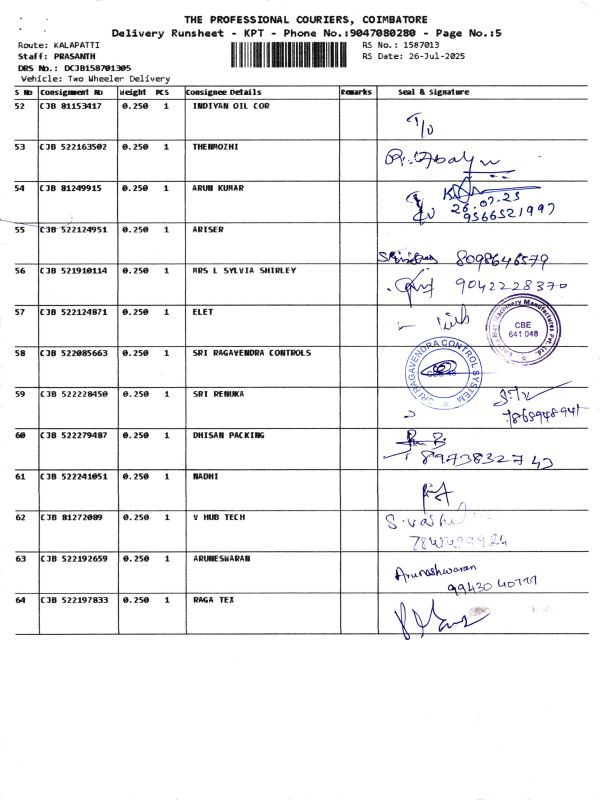 THE PROFESSIONAL COURIERS, COIMBATORE
Delivery Runsheet - KPT - Phone No.:9047080280 - Page No.:5
Route: KALAPATTI RS No.: 1587013
Staff: PRASANTH RS Date: 26-Jul-2025
DRS No.: DCJB158701305
Vehicle: Two Wheeler Delivery
S No Consignment No Weight PCS Consignee Details Remarks Seal & Signature
52 CJB 81153417 0.250 1 INDIYAN OIL COR
53 CJB 522163502 0.250 1 THENMOZHI
54 CJB 81249915 0.250 1 ARUN KUMAR
26.07.25
9566521997
55 CJB 522124951 0.250 1 ARISER
8098646579
56 CJB 521910114 0.250 1 MRS L SYLVIA SHIRLEY
9042228370
57 CJB 522124871 0.250 1 ELET
CBE
641 048
58 CJB 522085663 0.250 1 SRI RAGAVENDRA CONTROLS
SRI RAGAVENDRA CONTROL SYSTEM
59 CJB 522228450 0.250 1 SRI RENUKA
7865948941
60 CJB 522279487 0.250 1 DHISAN PACKING
8973832743
61 CJB 522241051 0.250 1 NADHI
62 CJB 81272089 0.250 1 V HUB TECH
63 CJB 522192659 0.250 1 ARUNESWARAN
Arunashwaran
64 CJB 522197833 0.250 1 RAGA TEX